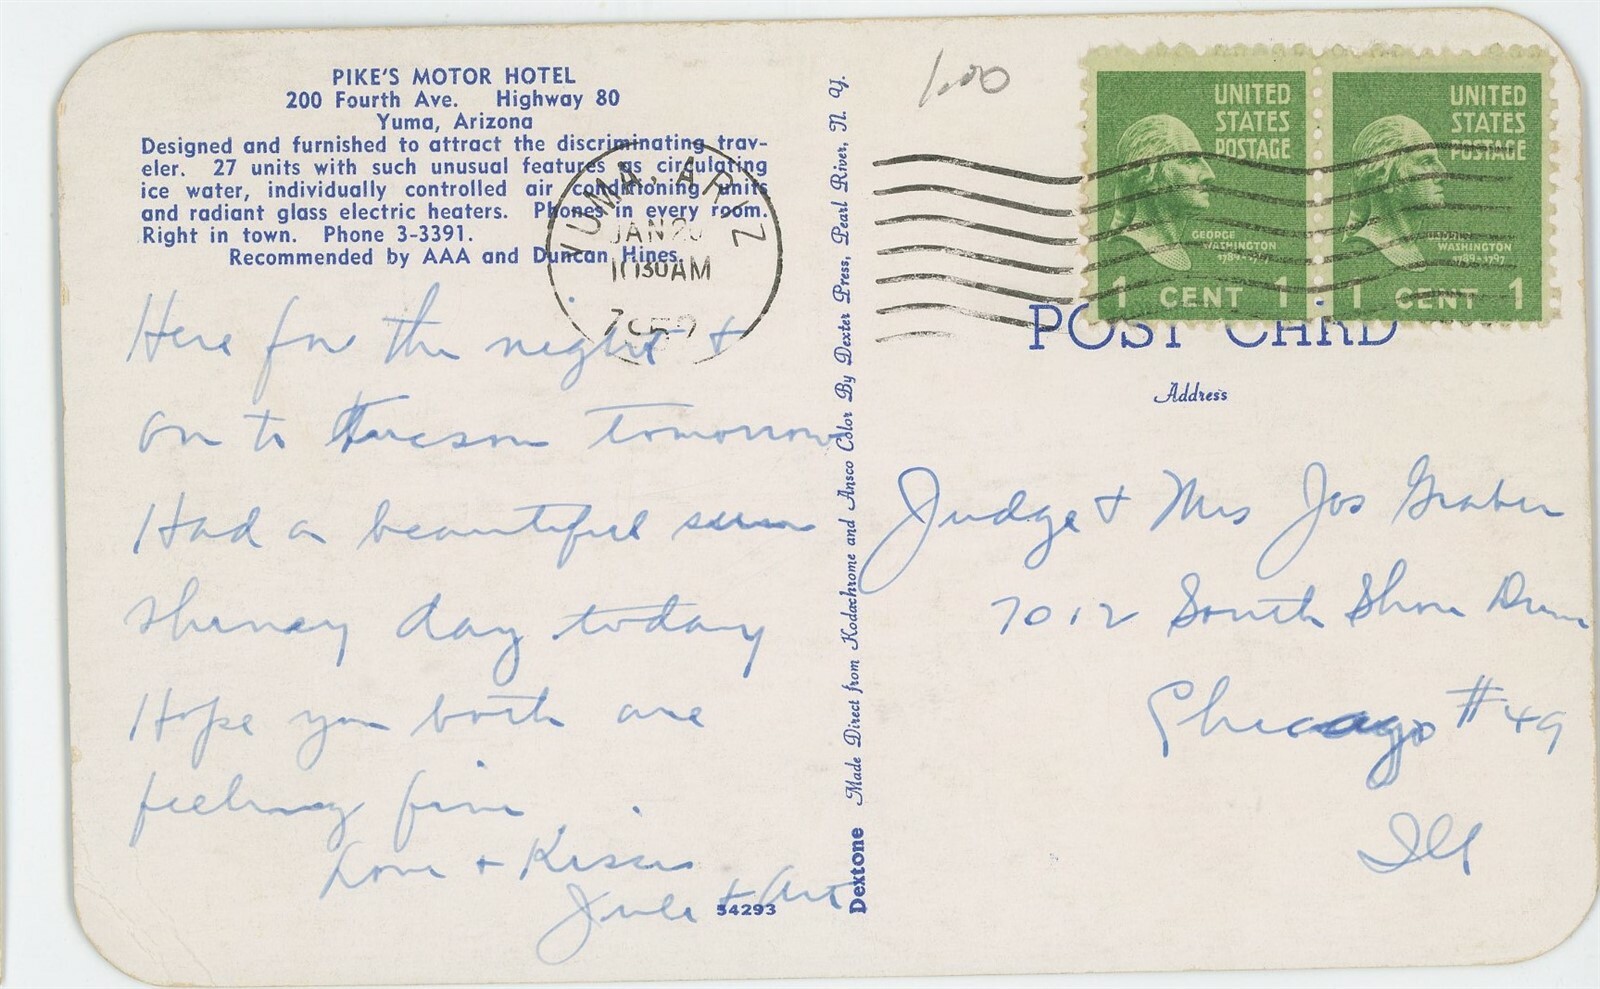 PIKE'S MOTOR HOTEL
200 Fourth Ave. Highway 80
Yuma, Arizona
Designed and furnished to attract the discriminating trav-
eler. 27 units with such unusual features as circulating
ice water, individually controlled air conditioning units
and radiant glass electric heaters. Phones in every room.
Right in town. Phone 3-3391.
Recommended by AAA and Duncan Hines.
YUMA, ARIZ
JAN 20
10 30 AM
Here for the night +
on to Tucson tomorrow
Had a beautiful sun
shiney day today
Hope you both are
feeling fine
Love + Kisses
Jule + Art
54293
Dextone Made Direct from Kodachrome and Ansco Color By Dexter Press, Pearl River, N. Y.
1.00
UNITED
STATES
POSTAGE
GEORGE
WASHINGTON
1789-1797
1 CENT 1
UNITED
STATES
POSTAGE
WASHINGTON
1789-1797
1 CENT 1
POST CARD
Address
Judge + Mrs Jos Graber
7012 South Shore Drive
Chicago #49
Ill